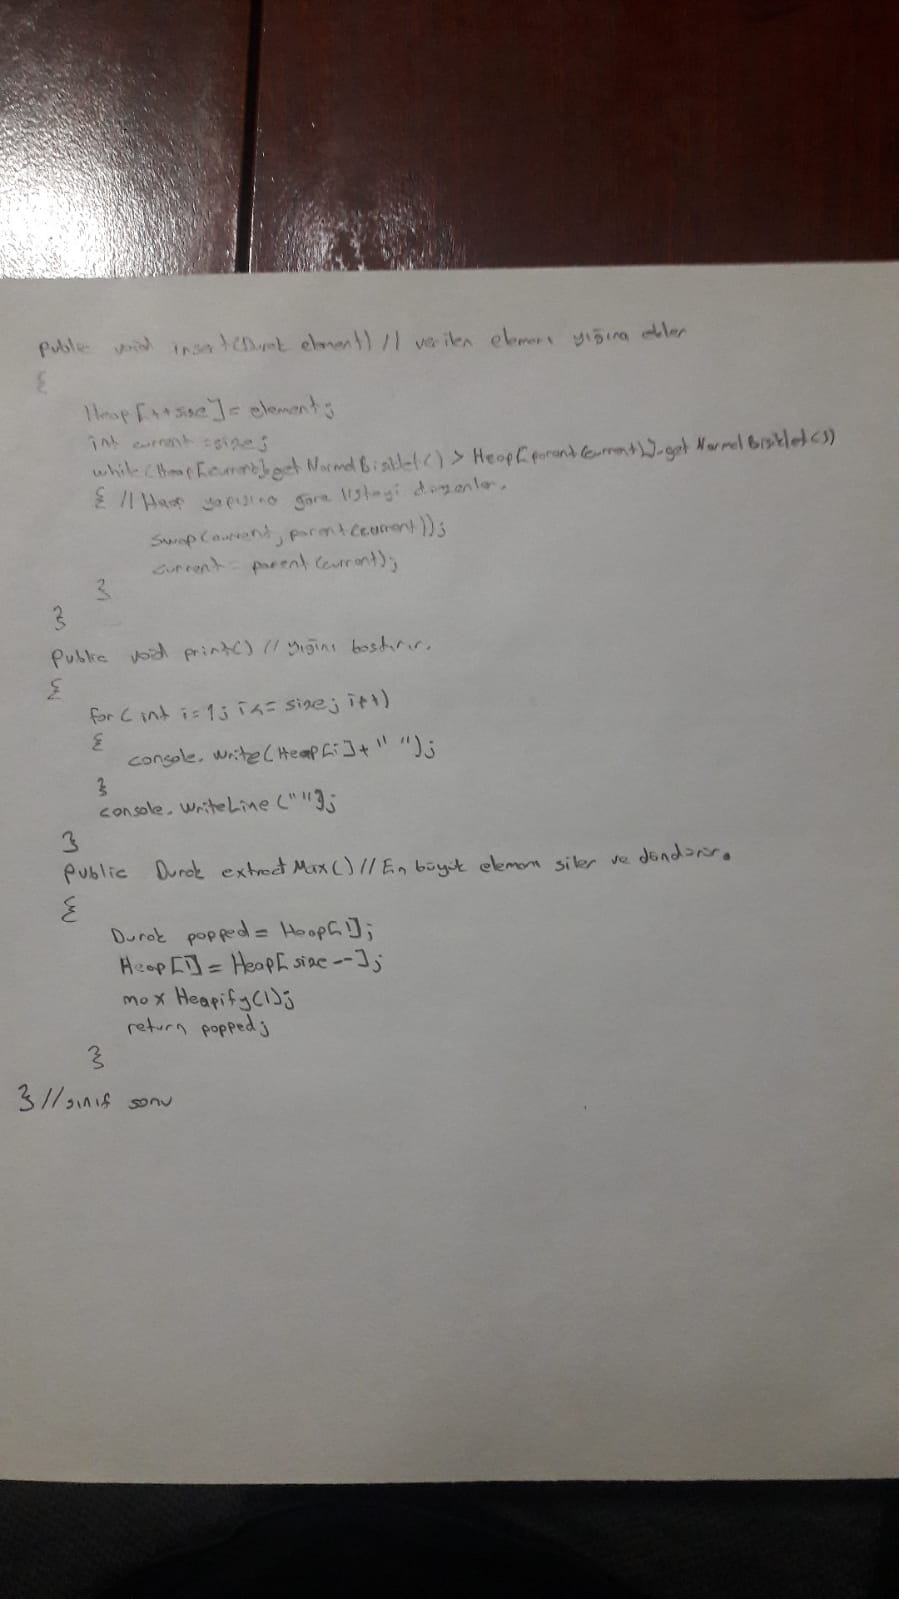 public void insert(Durak element) // verilen elemanı yığına ekler
{
Heap[++size] = element;
int current = size;
while (Heap[current].getNormalBisiklet() > Heap[parent(current)].getNormalBisiklet())
{ // Heap yapısına göre listeyi düzenler.
swap(current, parent(current));
current = parent(current);
}
}
public void print() // yığını bastırır.
{
for (int i=1; i<= size; i++)
{
console.write(Heap[i]+" ");
}
console.writeLine("");
}
public Durak extractMax() // En büyük elemanı siler ve döndürür.
{
Durak popped = Heap[1];
Heap[1] = Heap[size--];
maxHeapify(1);
return popped;
}
} // sınıf sonu